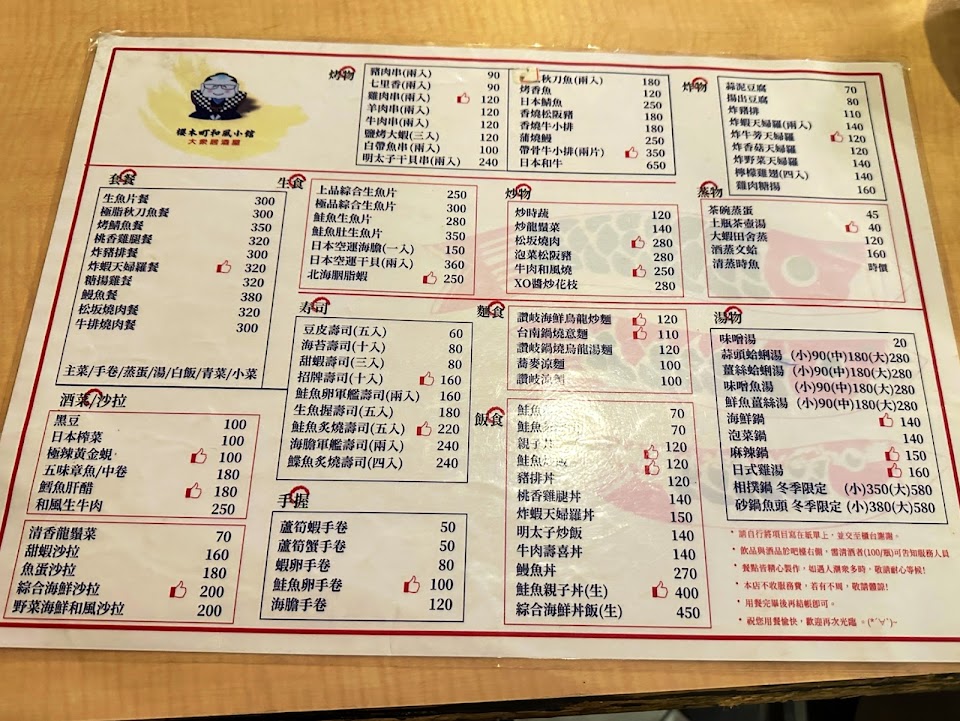 櫻木町和風小館
大衆居酒屋
烤物
豬肉串(兩入) 90
七里香(兩入) 90
雞肉串(兩入) 120
羊肉串(兩入) 120
牛肉串(兩入) 120
鹽烤大蝦(三入) 120
白帶魚串(兩入) 100
明太子干貝串(兩入) 240
秋刀魚(兩入) 180
烤香魚 120
日本鯖魚 250
香燒松阪豬 180
香燒牛小排 180
蒲燒鰻 250
帶骨牛小排(兩片) 350
日本和牛 650
炸物
蒜泥豆腐 70
揚出豆腐 80
炸豬排 110
炸蝦天婦羅(兩入) 140
炸牛蒡天婦羅 120
炸香菇天婦羅 120
炸野菜天婦羅 140
檸檬雞翅(四入) 140
雞肉糖揚 160
套餐
生魚片餐 300
極脂秋刀魚餐 300
烤鯖魚餐 350
桃香雞腿餐 320
炸豬排餐 300
炸蝦天婦羅餐 320
糖揚雞餐 320
鰻魚餐 380
松坂燒肉餐 320
牛排燒肉餐 300
主菜/手卷/蒸蛋/湯/白飯/青菜/小菜
生食
上品綜合生魚片 250
極品綜合生魚片 300
鮭魚生魚片 280
鮭魚肚生魚片 350
日本空運海膽(一入) 150
日本空運干貝(兩入) 360
北海胭脂蝦 250
炒物
炒時蔬 120
炒龍鬚菜 140
松坂燒肉 280
泡菜松阪豬 280
牛肉和風燒 250
XO醬炒花枝 280
蒸物
茶碗蒸蛋 45
土瓶茶壺湯 40
大蝦田舍蒸 120
酒蒸文蛤 160
清蒸時魚 時價
寿司
豆皮壽司(五入) 60
海苔壽司(十入) 80
甜蝦壽司(三入) 80
招牌壽司(十入) 160
鮭魚卵軍艦壽司(兩入) 160
生魚握壽司(五入) 180
鮭魚炙燒壽司(五入) 220
海膽軍艦壽司(兩入) 240
鰈魚炙燒壽司(四入) 240
麵食
讚岐海鮮烏龍炒麵 120
台南鍋燒意麵 110
讚岐鍋燒烏龍湯麵 120
蕎麥涼麵 100
讚岐涼麵 100
湯物
味噌湯 20
蒜頭蛤蜊湯 (小)90(中)180(大)280
薑絲蛤蜊湯 (小)90(中)180(大)280
味噌魚湯 (小)90(中)180(大)280
鮮魚薑絲湯 (小)90(中)180(大)280
海鮮鍋 140
泡菜鍋 140
麻辣鍋 150
日式雞湯 160
相撲鍋 冬季限定 (小)350(大)580
砂鍋魚頭 冬季限定 (小)380(大)580
酒菜/沙拉
黑豆 100
日本榨菜 100
極辣黃金蜆 100
五味章魚/中卷 180
鱈魚肝醋 180
和風生牛肉 250
清香龍鬚菜 70
甜蝦沙拉 160
魚蛋沙拉 180
綜合海鮮沙拉 200
野菜海鮮和風沙拉 200
手握
蘆筍蝦手卷 50
蘆筍蟹手卷 50
蝦卵手卷 80
鮭魚卵手卷 100
海膽手卷 120
飯食
鮭魚 70
鮭魚 70
親子丼 120
鮭魚 120
豬排丼 120
桃香雞腿丼 140
炸蝦天婦羅丼 150
明太子炒飯 140
牛肉壽喜丼 140
鰻魚丼 270
鮭魚親子丼(生) 400
綜合海鮮丼飯(生) 450
• 請自行將項目寫在紙單上，並交至櫃台謝謝。
• 飲品與酒品於吧檯右側，需清酒者(100/瓶)可告知服務人員
• 餐點皆精心製作，如遇人潮衆多時，敬請耐心等候!
• 本店不收服務費，若有不周，敬請體諒!
• 用餐完畢後再結帳即可。
• 祝您用餐愉快，歡迎再次光臨。(*ˊ∀ˋ)~